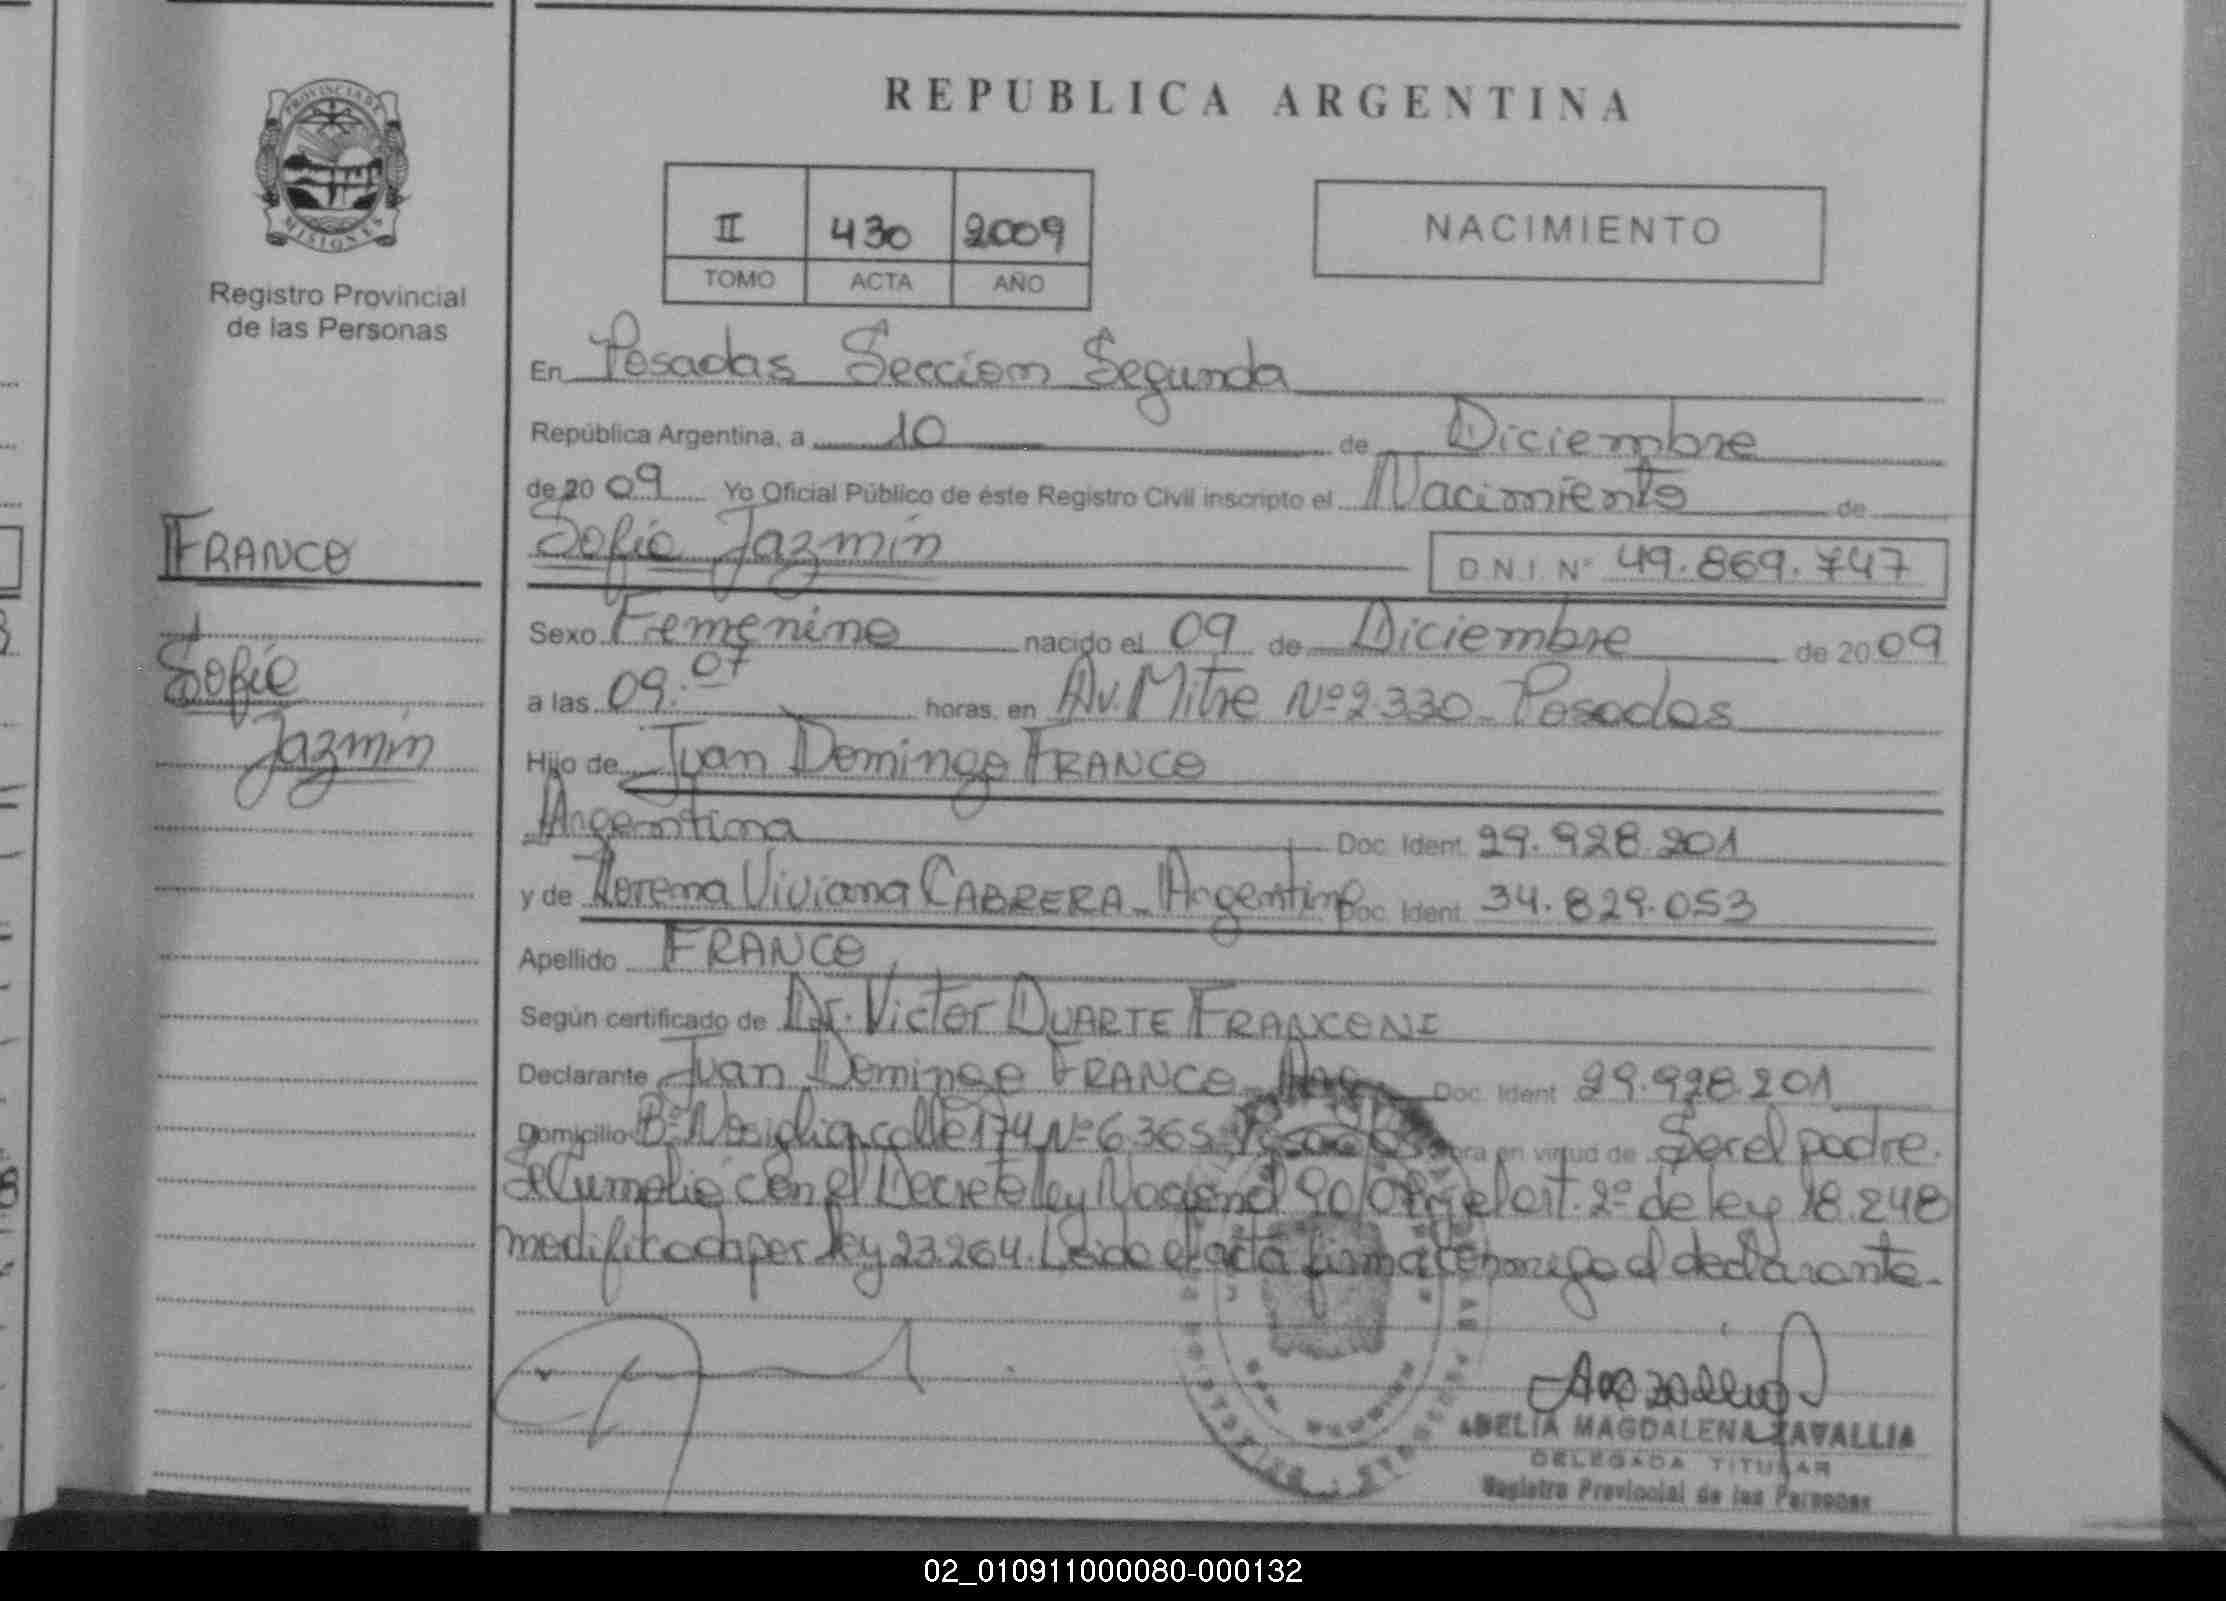 PROVINCIA DE
MISIONES
Registro Provincial
de las Personas
FRANCO
Sofía
Jazmín
REPUBLICA ARGENTINA
II 430 2009
TOMO ACTA AÑO
NACIMIENTO
En Posadas Sección Segunda
República Argentina, a 10 de Diciembre
de 2009 Yo Oficial Público de éste Registro Civil inscripto el Nacimiento de
Sofía Jazmín
D.N.I. Nº 49.869.747
Sexo Femenino nacido el 09 de Diciembre de 2009
a las 09:07 horas, en Av. Mitre Nº 2330 - Posadas
Hijo de Juan Domingo FRANCO
Argentina Doc. Ident. 29.928.201
y de Lorena Viviana CABRERA - Argentina Doc. Ident. 34.829.053
Apellido FRANCO
Según certificado de Dr. Victor DUARTE FRANCONI
Declarante Juan Domingo FRANCO - Arg Doc. Ident. 29.928.201
Domicilio Bº Nosiglia calle 174 Nº 6.365 - Posadas en virtud de Ser el padre.
Se Cumplió con el Decreto ley Nacional el art. 2º de ley 18.248
modificada por ley 23.264. Leída el acta firma conmigo el declarante.
MAGDALENA ZAVALLIA
DELEGADA TITULAR
Registro Provincial de las Personas
02_010911000080-000132